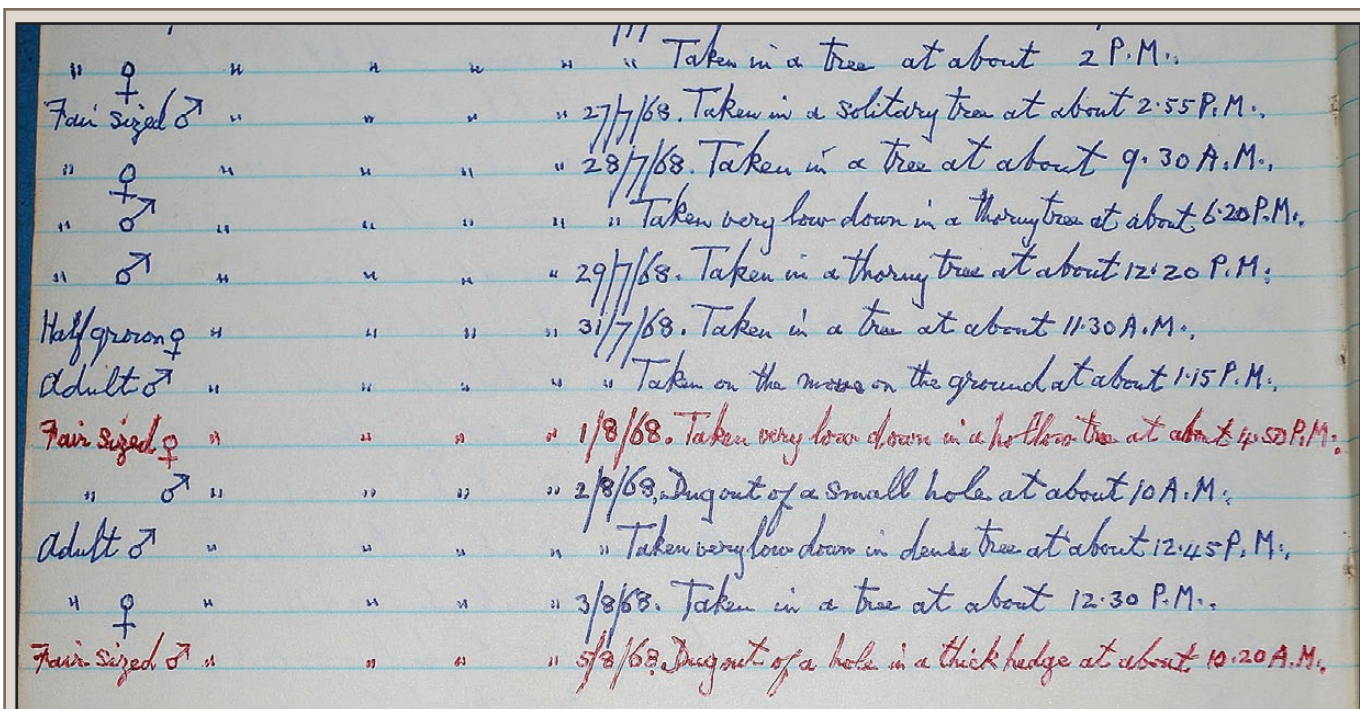 " ♀ " " " " " Taken in a tree at about 2 P.M.
Fair sized ♂ " " " " 27/7/68. Taken in a solitary tree at about 2.55 P.M.
" ♀ " " " " 28/7/68. Taken in a tree at about 9.30 A.M.
" ♂ " " " " " Taken very low down in a thorny tree at about 6.20 P.M.
" ♂ " " " " 29/7/68. Taken in a thorny tree at about 12.20 P.M.
Half grown ♀ " " " " 31/7/68. Taken in a tree at about 11.30 A.M.
Adult ♂ " " " " " Taken on the move on the ground at about 1.15 P.M.
Fair sized ♀ " " " " 1/8/68. Taken very low down in a hollow tree at about 4.50 P.M.
" ♂ " " " " 2/8/68. Dug out of a small hole at about 10 A.M.
Adult ♂ " " " " " Taken very low down in dense tree at about 12.45 P.M.
" ♀ " " " " 3/8/68. Taken in a tree at about 12.30 P.M.
Fair sized ♂ " " " " 5/8/68. Dug out of a hole in a thick hedge at about 10.20 A.M.